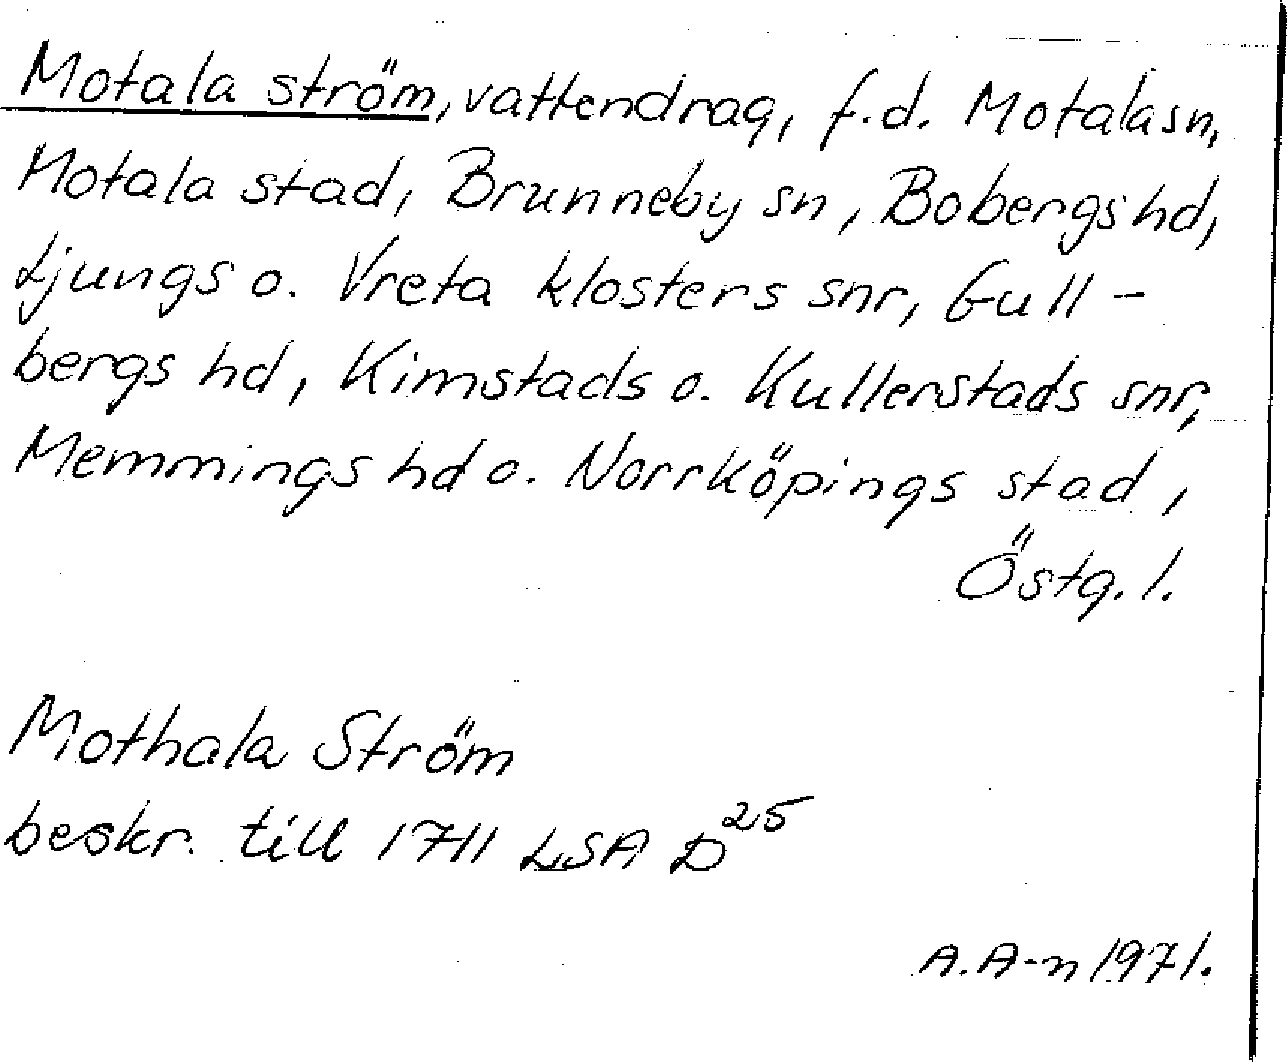 Motala ström, vattendrag, f.d. Motala sn,
Motala stad, Brunneby sn, Bobergs hd,
Ljungs o. Vreta klosters snr, Gull-
bergs hd, Kimstads o. Kullerstads snr,
Memmings hd o. Norrköpings stad,
Östg. l.
Mothala Ström
beskr. till 1711 LSA D25
A. A-n 1971.